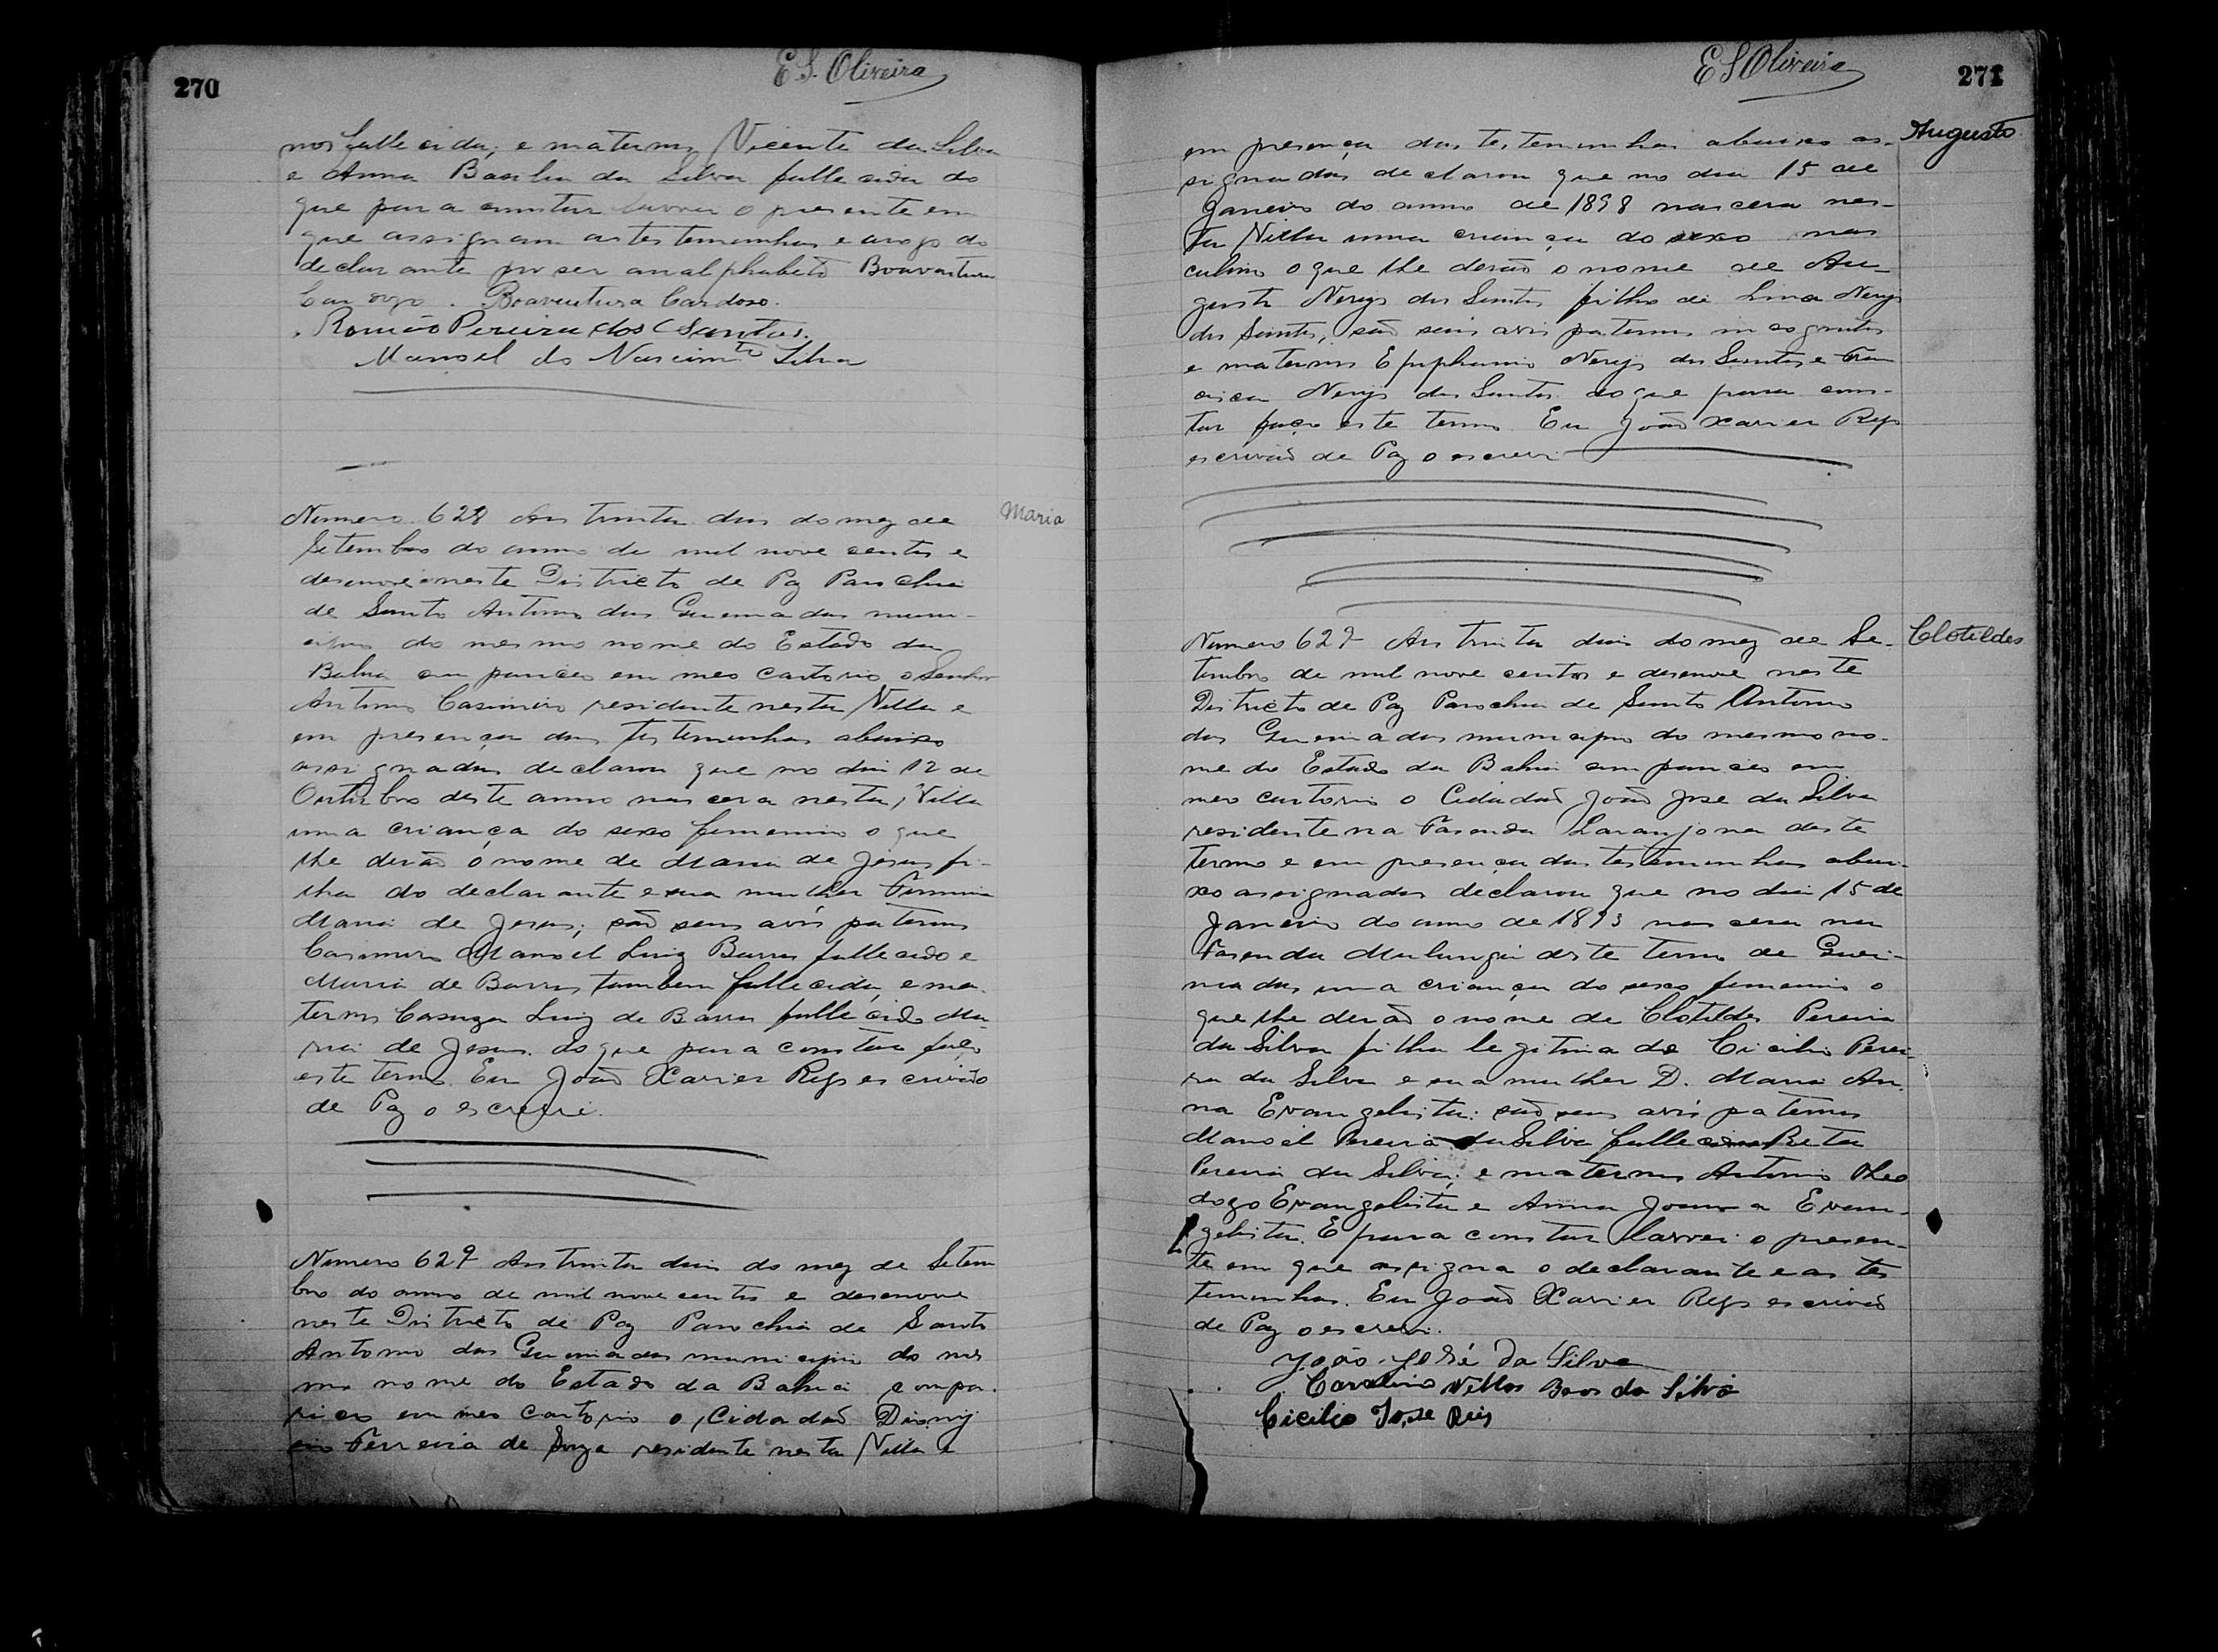 270
E S. Oliveira
nos fallecida; e maternos Vicente da Silva
e Anna Basilia da Silva fallecida do
que para constar lavrei o presente em
que assignam as testemunhas e arogo do
declarante por ser analphabeto Boaventura
Cardoso. Boaventura Cardoso.
Romão Pereira dos Santos.
Manoel do Nascimto Silva
Maria
Numero 628 Aos trinta dias do mez de
Setembro do anno de mil nove centos e
desenove neste Districto de Paz Parochia
de Santo Antonio das Queimadas muni-
cipio do mesmo nome do Estado da
Bahia compareceo em meo cartorio o Senhor
Antonio Casimiro residente nesta Villa e
em presença das testemunhas abaixo
assignadas declarou que no dia 12 de
Outubro deste anno nascera nesta Villa
uma criança do sexo femenino o que
lhe derão o nome de Maria de Jesus fi-
lha do declarante e sua mulher Firmina
Maria de Jesus; são seus avós paternos
Casimiro Manoel Luiz Barros fallecido e
Maria de Barros tambem fallecida, e ma-
ternos Luiz de Barros fallecido Ma-
ria de Jesus. do que para constar faço
este termo. Eu João Xavier Reps escrivão
de Paz o escrevi.
Numero 629 Aos trinta dias do mez de Setem
bro do anno de mil nove centos e desenove
neste Districto de Paz Parochia de Santo
Antonio das Queimadas municipio do mes
mo nome do Estado da Bahia compa-
receo em meo cartorio o Cidadão Dionij
sio Ferreira de Souza residente nesta Villa e
E S Oliveira
271
Augusto
em presença das testemunhas abaixo as-
signadas declarou que no dia 15 de
Janeiro do anno de 1898 nascera nes-
ta Villa uma criança do sexo mas
culino o que lhe derão o nome de Au-
gusto Nerys dos Santos filho de Lina Nerys
dos Santos, são seus avós paternos incognitos
e maternos Epiphanio Nerys dos Santos e Fran
cisca Nerys dos Santos do que para cons-
tar faço este termo. Eu João Xavier Reps
escrivão de Paz o escrevi
Clotildes
Numero 629 Aos trinta dias do mez de Se-
tembro de mil nove centos e desenove neste
Districto de Paz Parochia de Santo Antonio
das Queimadas municipio do mesmo no-
me do Estado da Bahia compareceo em
meo cartorio o Cidadão João Jose da Silva
residente na Fasenda Laranjona deste
termo e em presença das testemunhas abai-
xo assignadas declarou que no dia 15 de
Janeiro do anno de 1893 nascera na
Fasenda Mulungú deste termo de Quei-
madas uma criança do sexo femenino o
que lhe derão o nome de Clotildes Pereira
da Silva filha legitima de Cicilio Perei-
ra da Silva e sua mulher D. Maria An-
na Evangelista: são seus avós paternos
Manoel Pereira da Silva fallecido
Pereira da Silva; e maternos Antonio
Evangelista e Anna Joanna Evan-
gelista. E para constar lavrei o presen-
te em que assigna o declarante e as tes
temunhas. Eu João Xavier Reps escrivão
de Paz o escrevi.
João José da Silva
Carolino Villas Boas da Silva
Cicilio Jose Reis